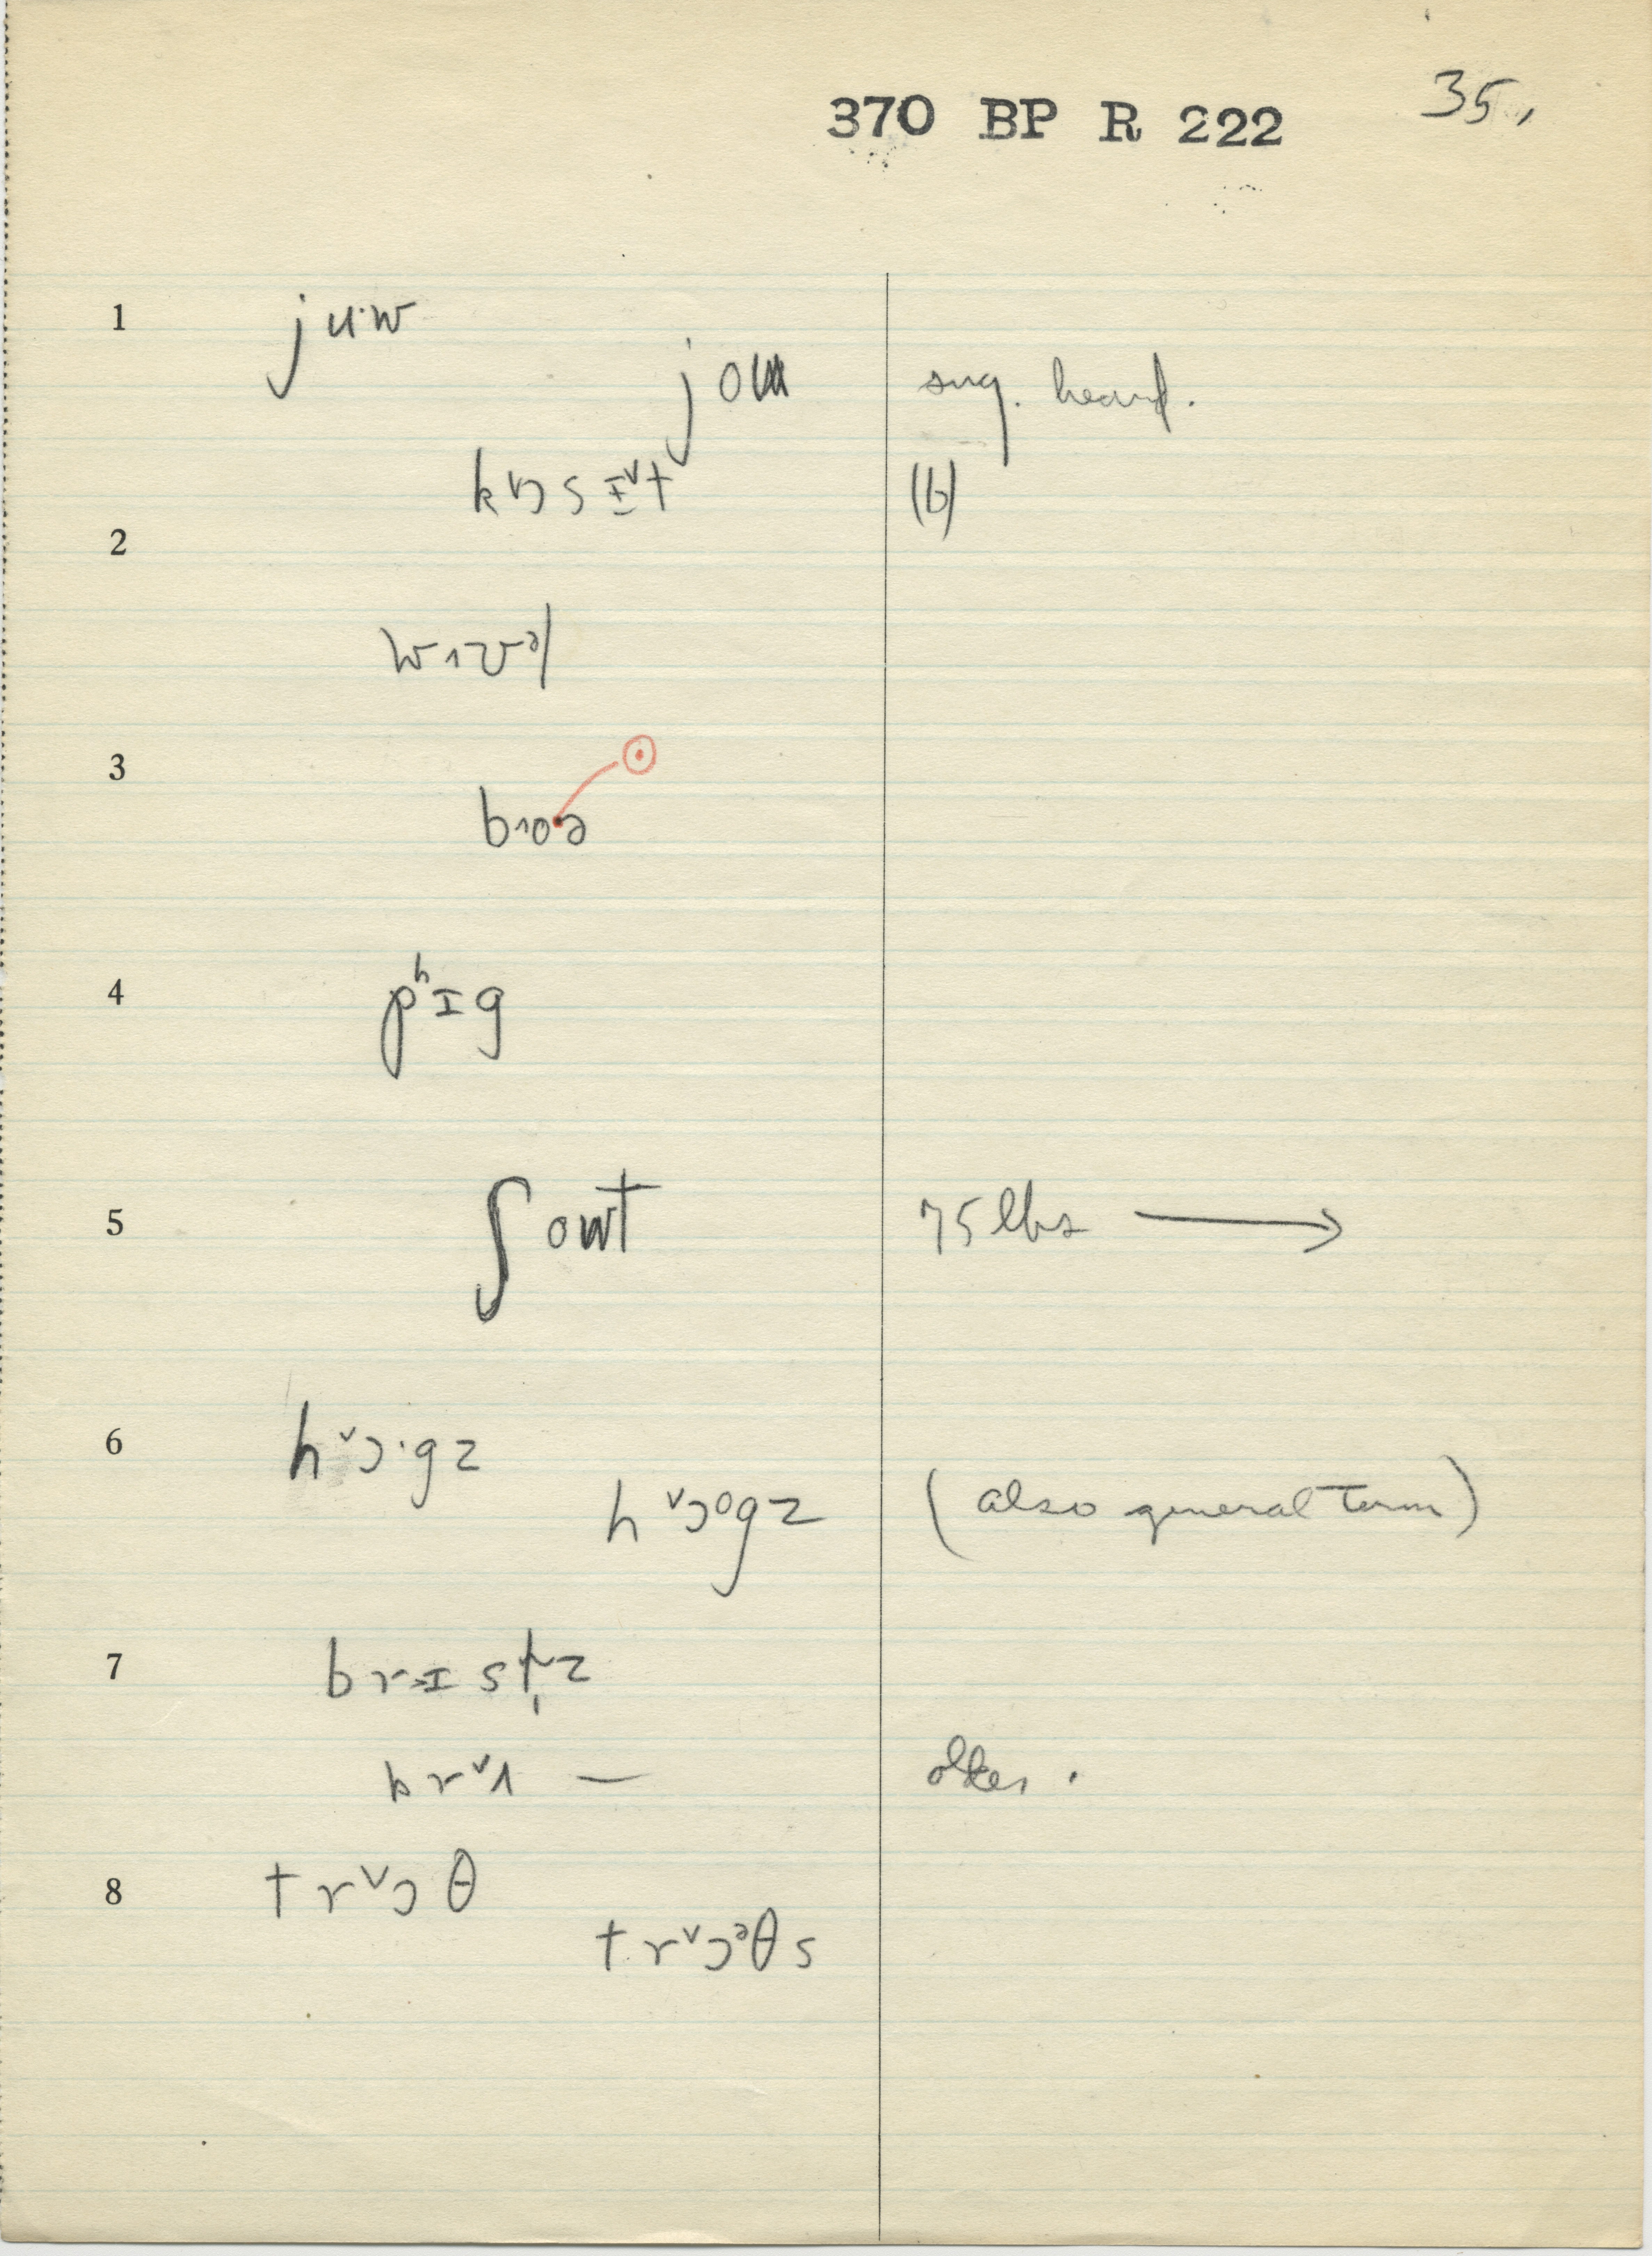 370 BP R 222 35.
1 juˑw
joʊ sug. heard.
kɒsɪ˅t (b)
2
wɪvᵊl
3
bɔoˑə
4 pʰɪg
5 ʃowt 75 lbs →
6 h˅ɔˑgz
h˅ɔᵒgz (also general term)
7 brɪst̩z
br˅ʌ — older.
8 tr˅ɔθ
tr˅ɔᵊθs